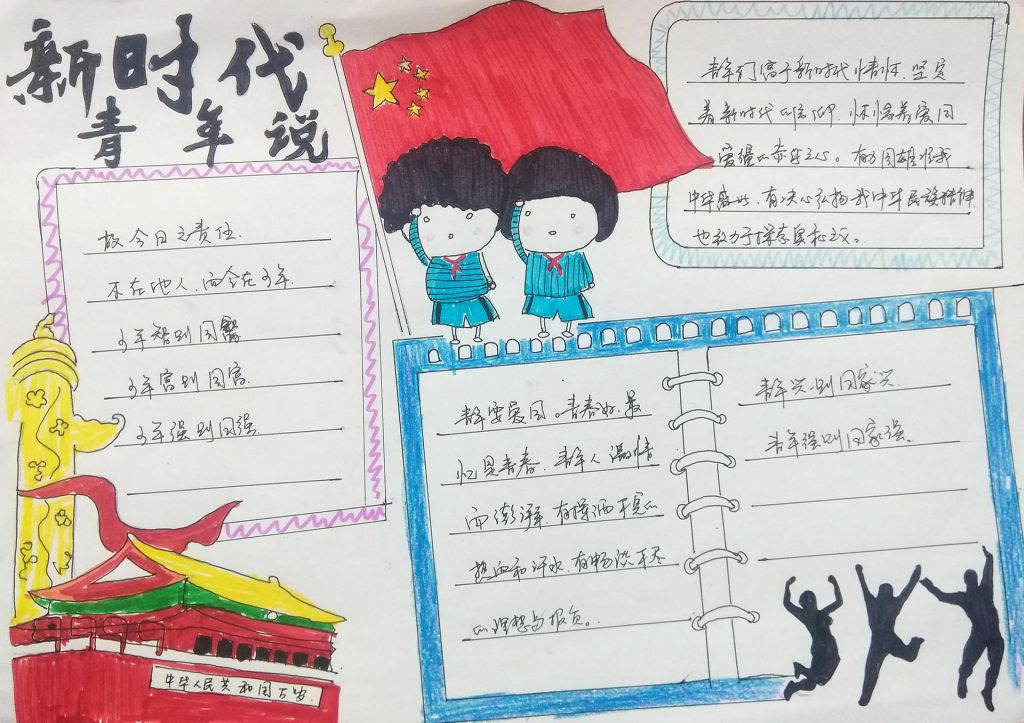 新时代
青年说
故今日之责任.
不在他人,而今在少年.
少年智则国智
少年富则国富.
少年强则国强.
中华人民共和国万岁.
青年们富于新时代情怀.坚定
着新时代的信仰.怀揣着爱国
爱疆的赤子之心。有力图雄怀我
中华盛世,有决心弘扬我中华民族精神
也致力于探
青年要爱国。青春好,最
忆是青春.青年人激情
而澎湃.有挥洒不完的
热血和汗水,有畅谈不尽
的理想与报负。
青年兴则国家兴.
青年强则国家强。